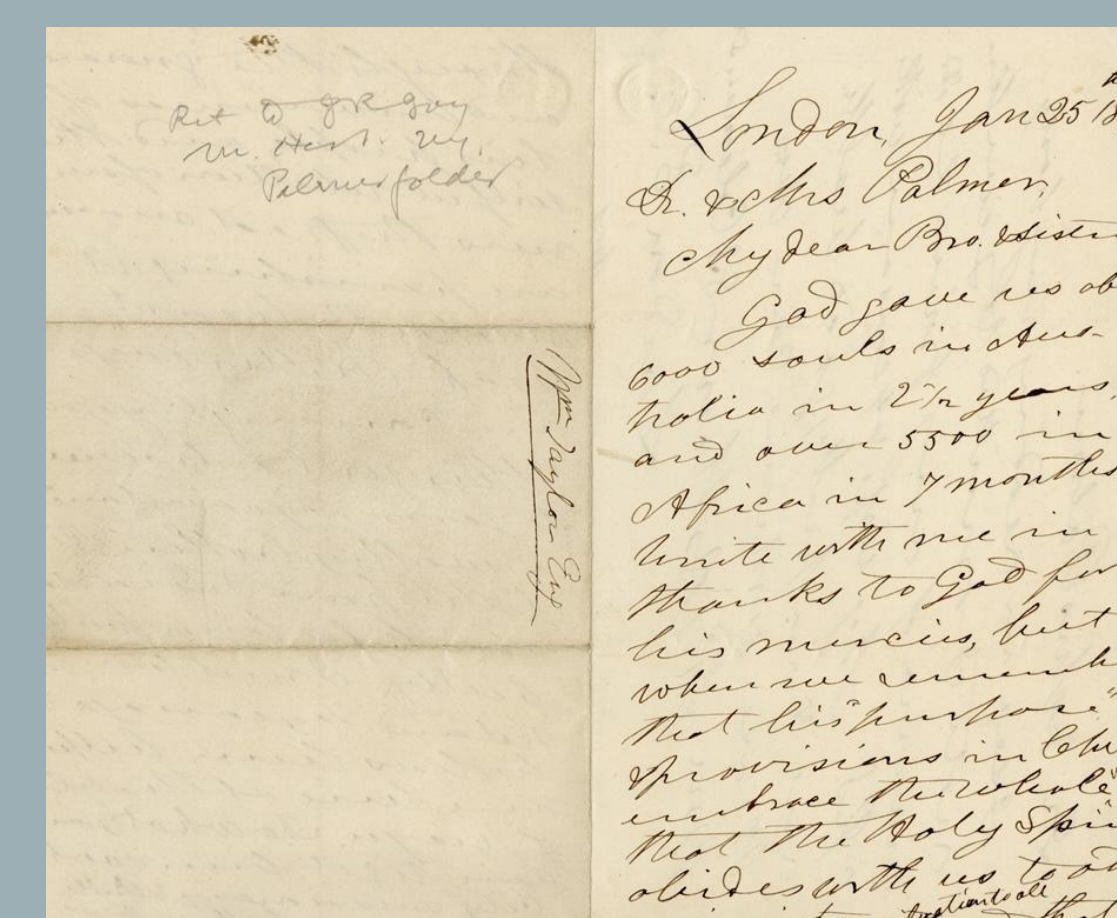 Ret to J R Joy
M. Hist. Ny.
Palmer folder
Wm Taylor Eng
London, Jan 25 18
Dr. & Mrs Palmer,
My dear Bro. & Siste
God gave us ab
6000 souls in Aus-
tralia in 2 1/2 years,
and over 5500 in
Africa in 7 months
Unite with me in
thanks to God for
his mercies, but
when we rememb
that his "purpose"
& provisions in Ch
embrace the whole"
that the Holy Spi
abides with us to
to all